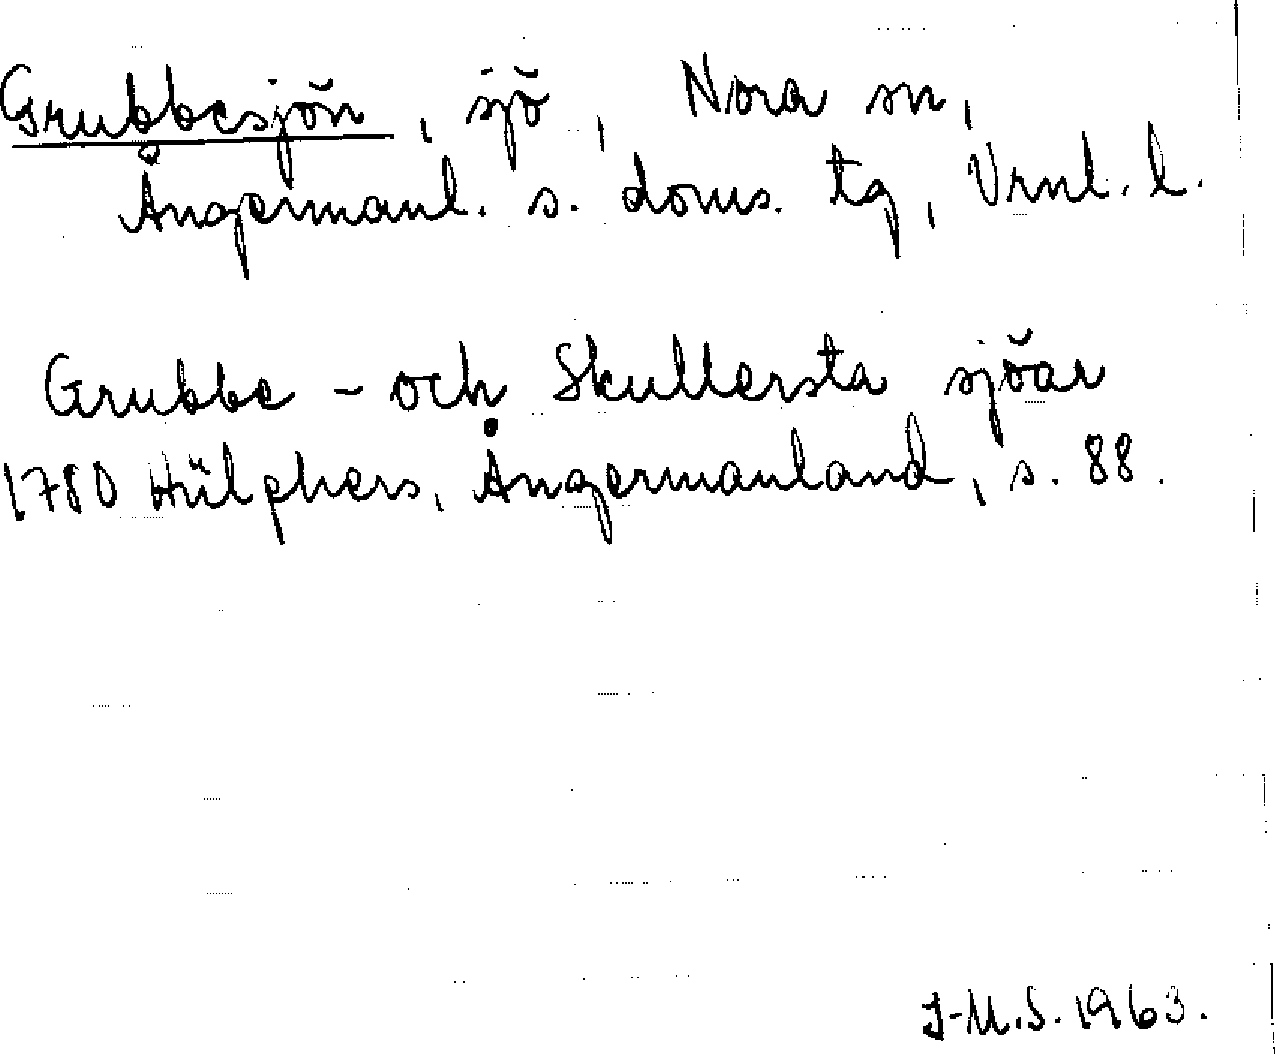 Grubbesjön, sjö, Nora sn,
Ångermanl. s. doms. tg, Vrnl. l.
Grubbe - och Skullersta sjöar
1780 Hülphers, Ångermanland, s. 88.
J-M.S. 1963.